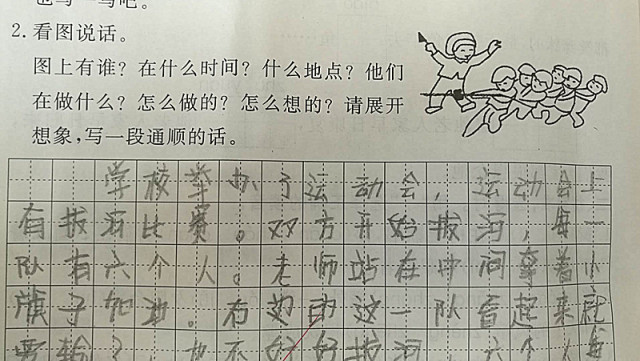 也写一写吧。
2. 看图说话。
图上有谁？在什么时间？什么地点？他们
在做什么？怎么做的？怎么想的？请展开
想象，写一段通顺的话。
学校举办了运动会，运动会上
有拔河比赛。双方开始拔河，每一
队有六个人。老师站在中间拿着小
旗子加油。右边的这一队看起来就
要输了，也不好好拔河。六个人